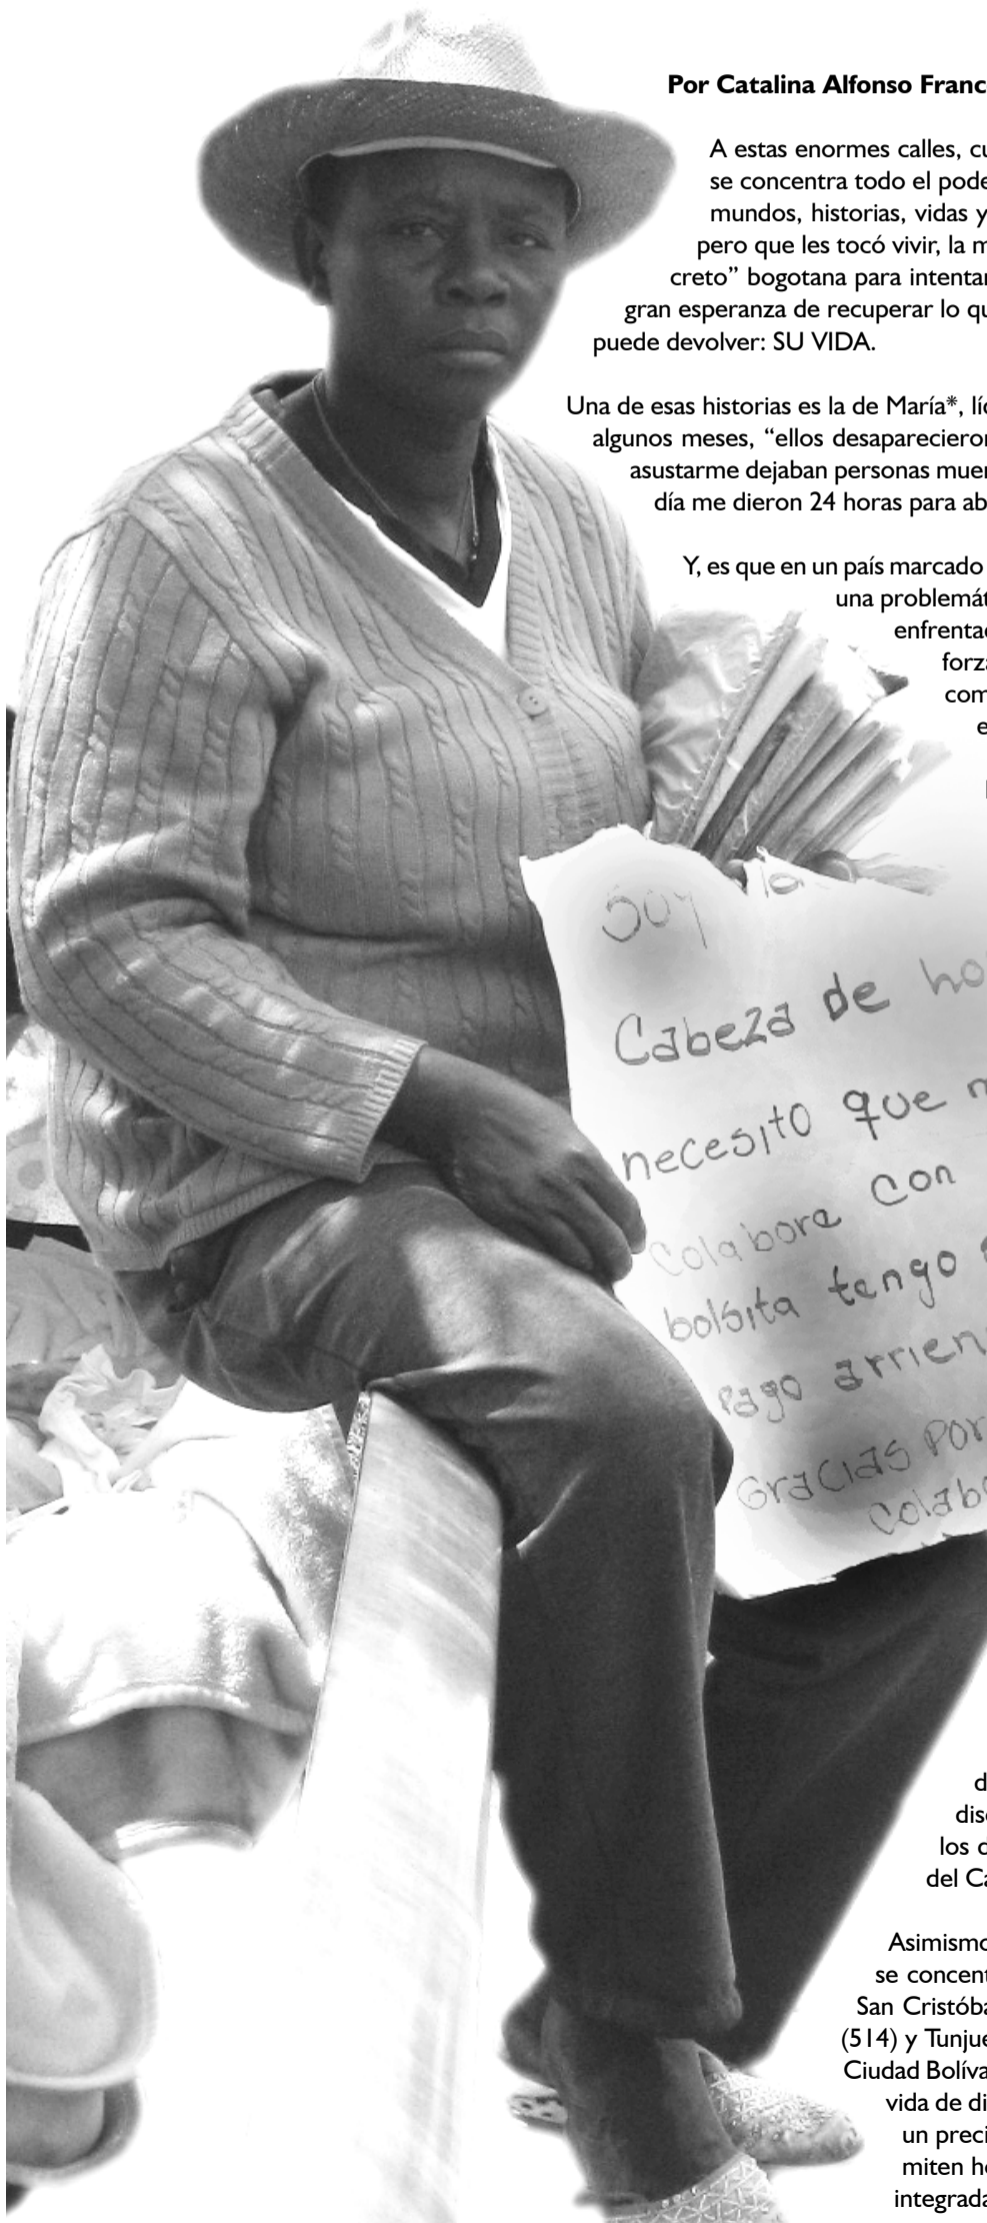 Por Catalina Alfonso Franc
A estas enormes calles, cu
se concentra todo el pode
mundos, historias, vidas y
pero que les tocó vivir, la m
creto” bogotana para intentar
gran esperanza de recuperar lo qu
puede devolver: SU VIDA.
Una de esas historias es la de María*, líd
algunos meses, “ellos desaparecieron
asustarme dejaban personas muer
día me dieron 24 horas para ab
Y, es que en un país marcado
una problemát
enfrentad
forza
com
e
Soy la
Cabeza de ho
necesito que m
Colabore con
bolsita tengo
Pago arrien
Gracias Por
colabo
d
disc
los d
del Ca
Asimismo
se concent
San Cristóba
(514) y Tunjue
Ciudad Bolíva
vida de di
un preci
miten ho
integrada